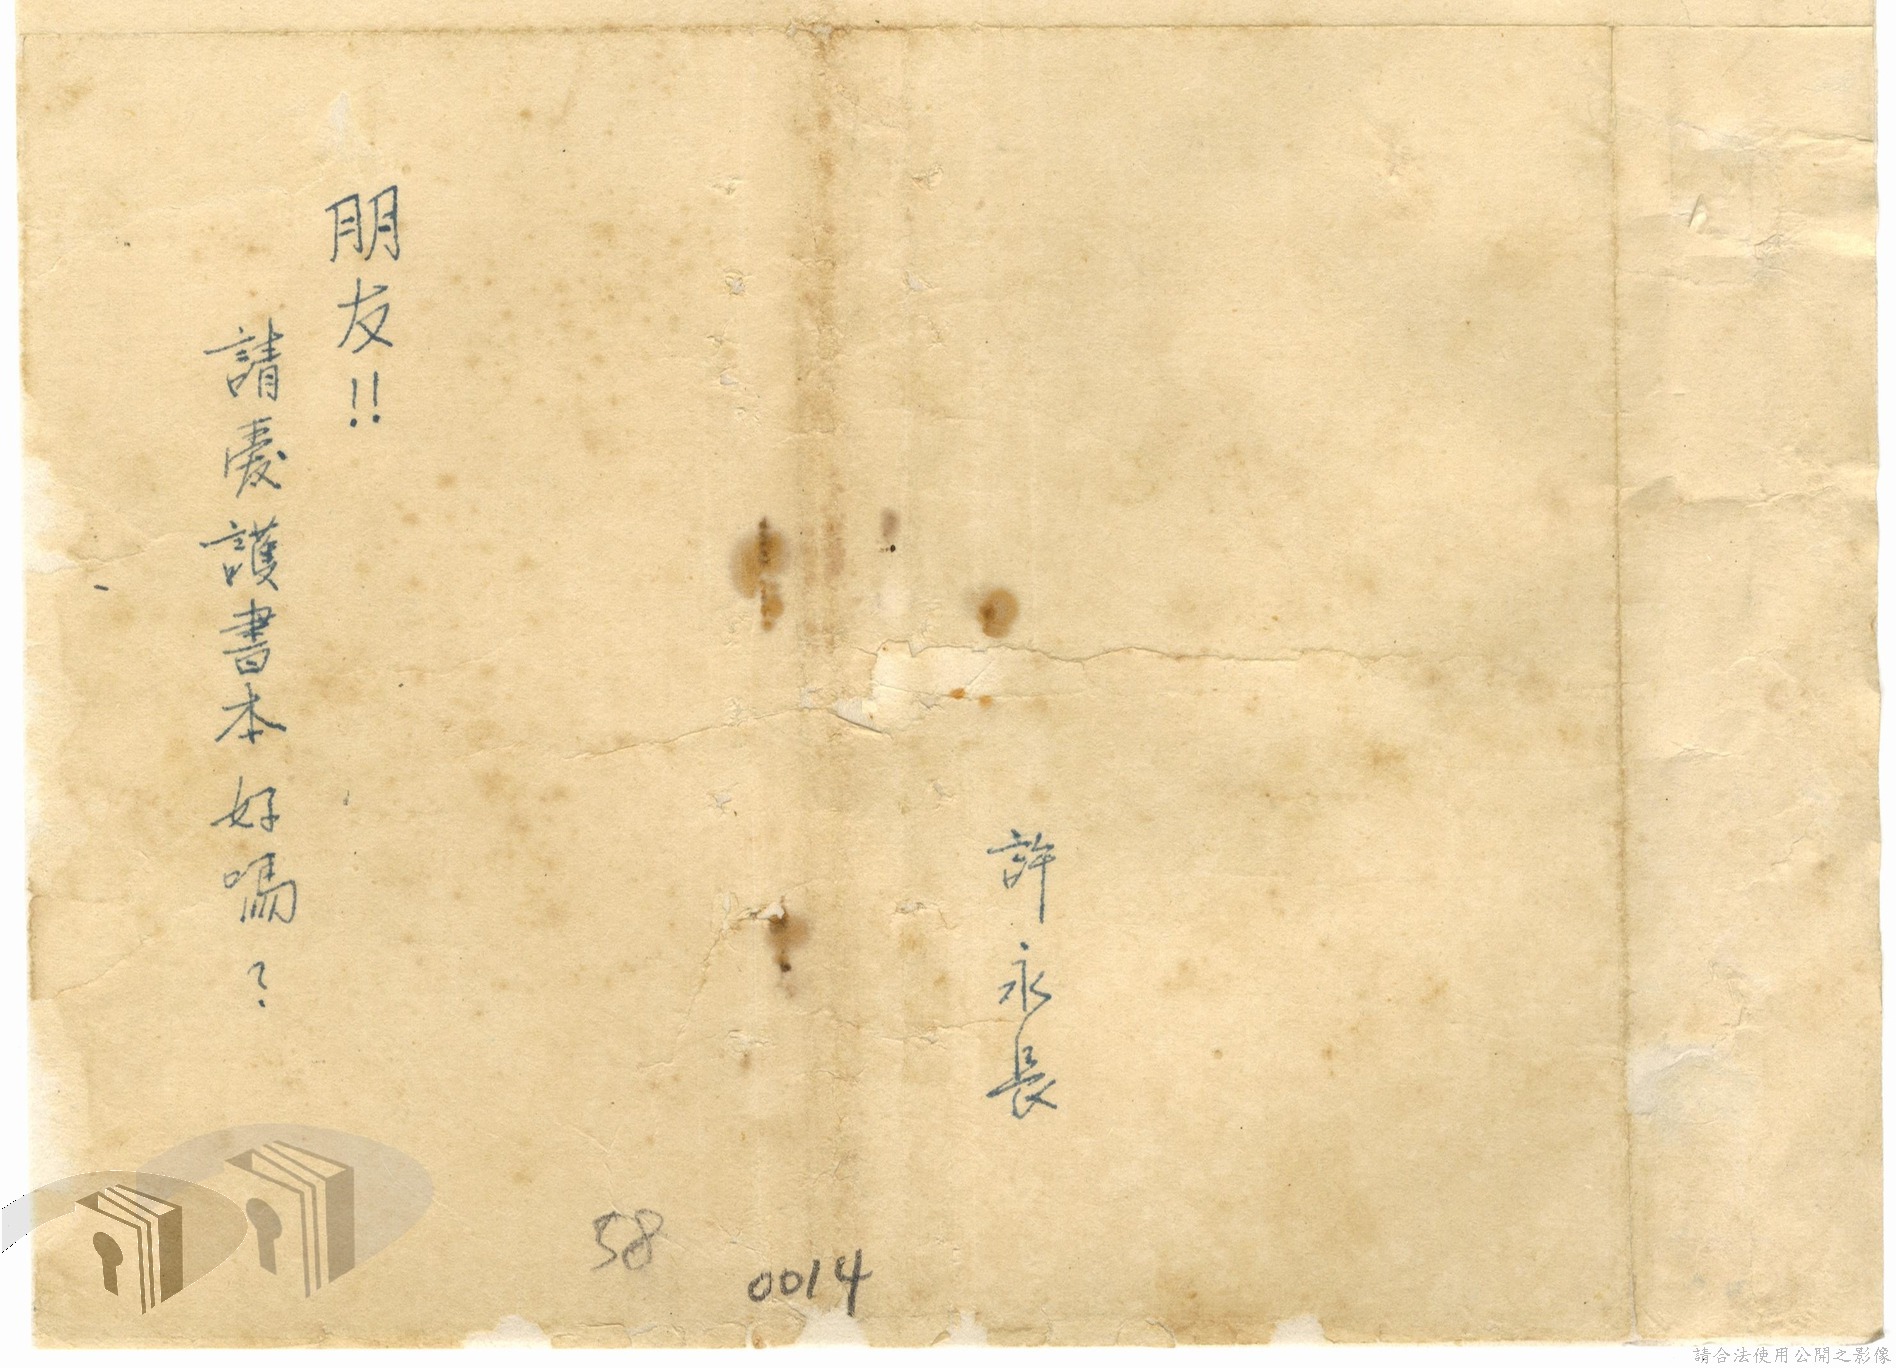 許永長
朋友!!
請愛護書本好嗎?
58
0014
請合法使用公開之影像